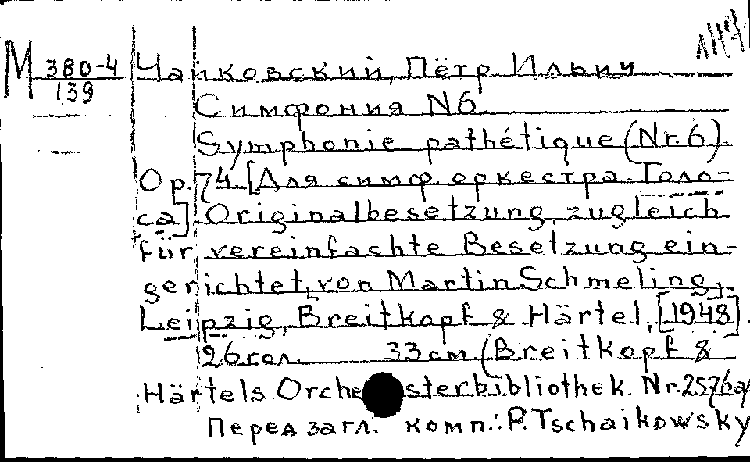 М 380-4 Чайковский, Пётр Ильич
139
Симфония N6
Symphonie pathétique (Nr.6).
Op. 74 [Для симф. оркестра. Голо-
са] Originalbesetzung, zugleich
für vereinfachte Besetzung ein-
gerichtet, von Martin Schmeling,
Leipzig, Breitkopf & Härtel, [1948].
26 гол. 33 см (Breitkopf &
Härtels Orchesterbibliothek. Nr. 2576a)
Перед загл. комп.: P. Tschaikowsky